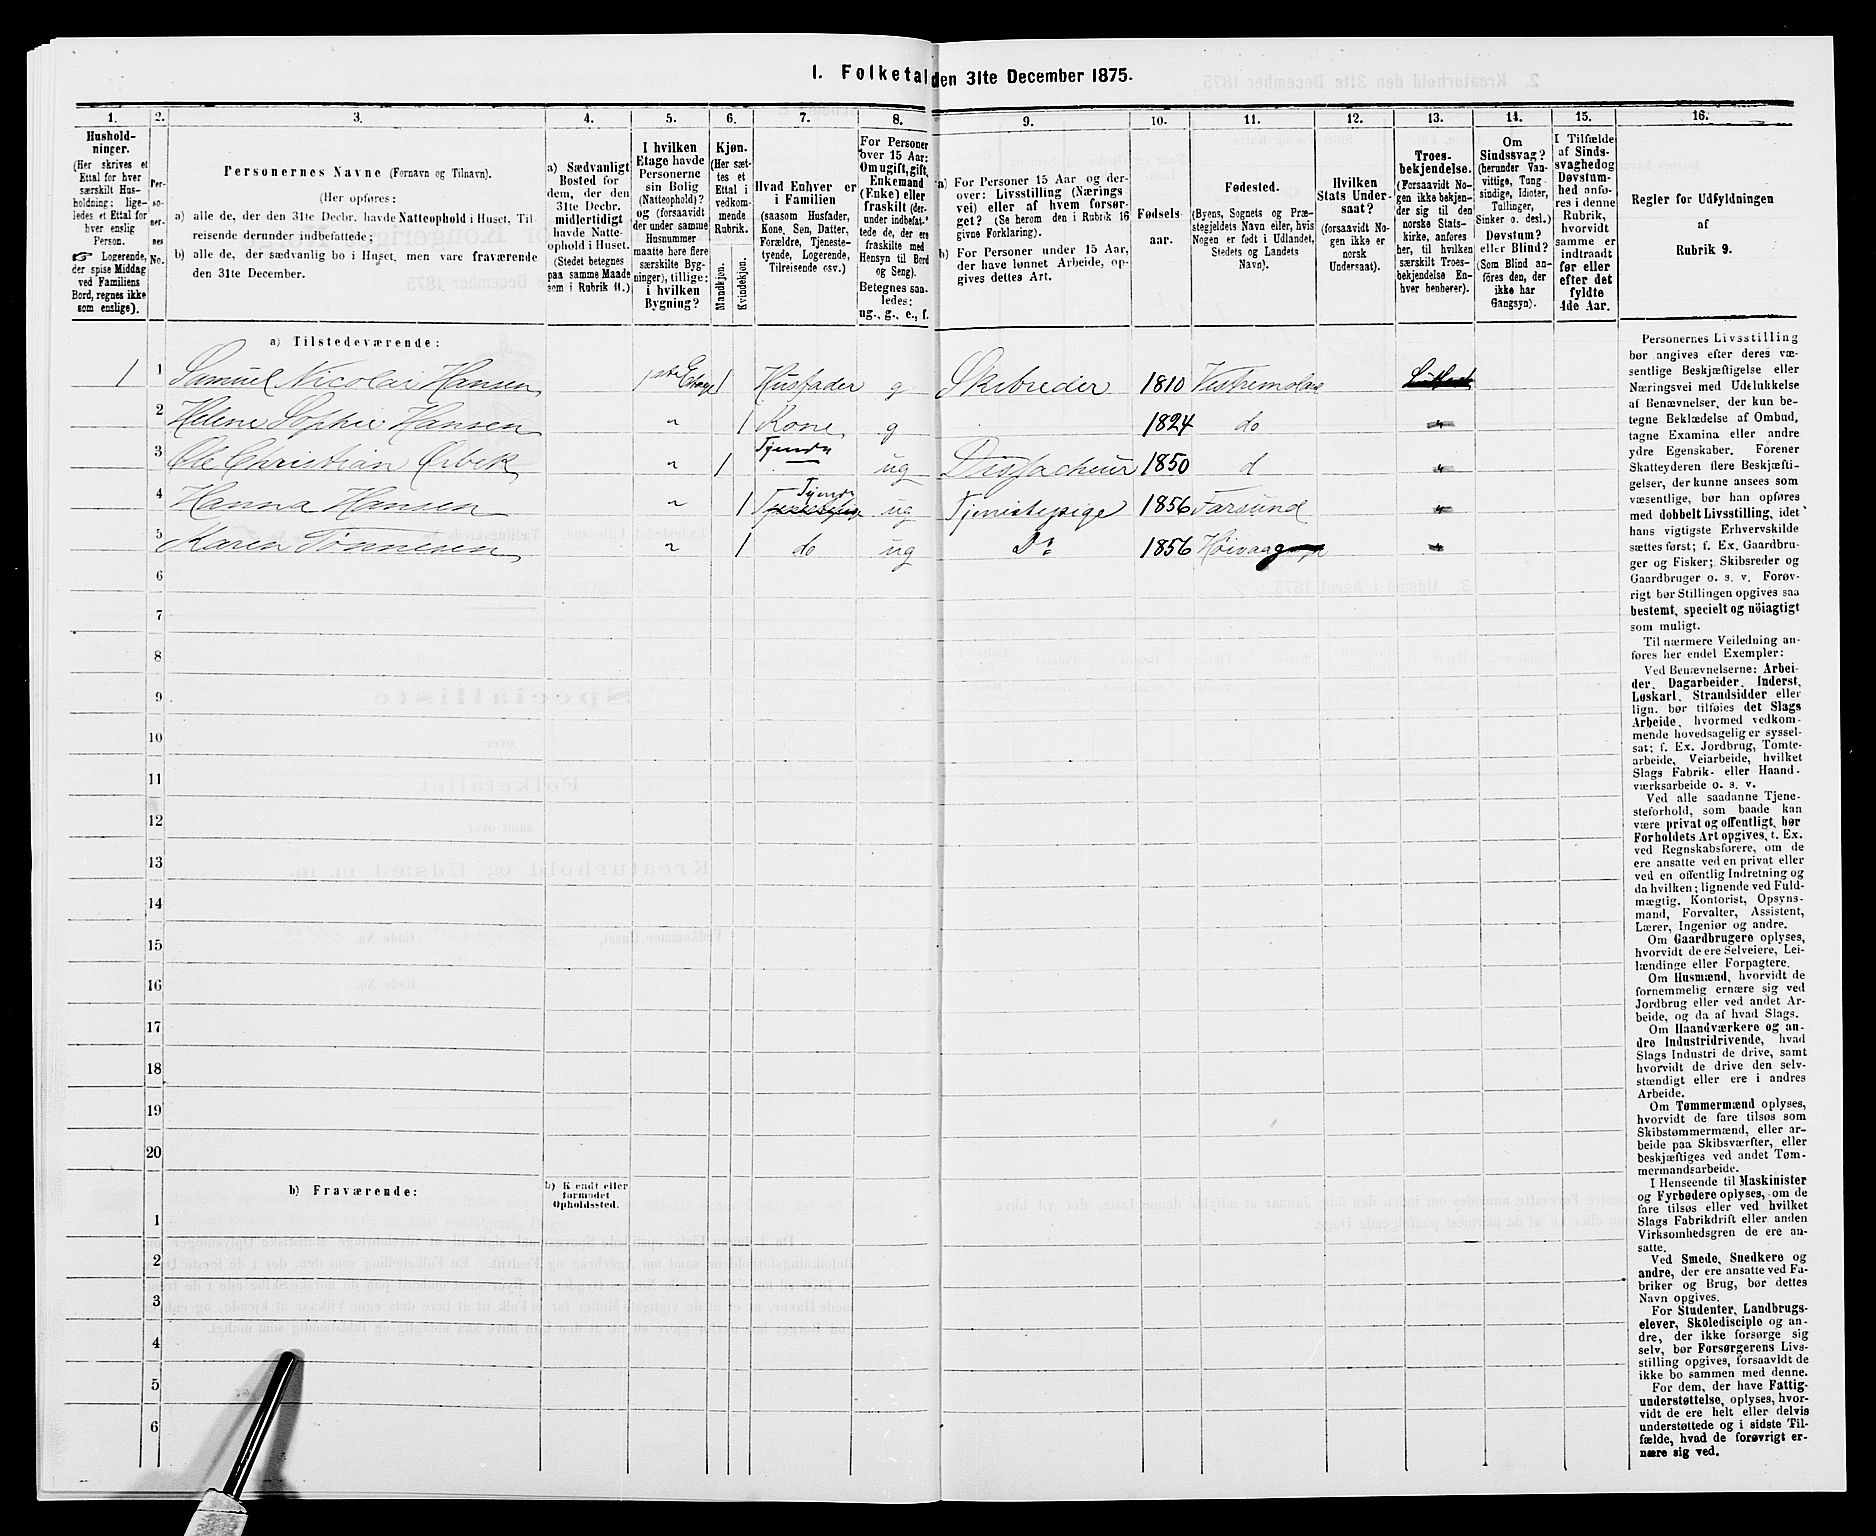 I. Folketal den 31te December 1875.
1. 2. 3. 4. 5. 6. 7. 8. 9. 10. 11. 12. 13. 14. 15. 16.
Hushold-
ninger.
(Her skrives et
Ettal for hver
særskilt Hus-
holdning; lige-
ledes et Ettal for
hver enslig
Person.
☞ Logerende,
der spise Middag
ved Familiens
Bord, regnes ikke
som enslige).
Per-
so-
ner-
nes
No.
Personernes Navne (Fornavn og Tilnavn).
(Her opføres:
a) alle de, der den 31te Decbr. havde Natteophold i Huset, Til-
reisende derunder indbefattede;
b) alle de, der sædvanlig bo i Huset, men vare fraværende
den 31te December.
a) Sædvanligt
Bosted for
dem, der den
31te Decbr.
midlertidigt
havde Natte-
ophold i Huset.
(Stedet betegnes
paa samme Maade
som i Rubrik 11.)
I hvilken
Etage havde
Personerne
sin Bolig
(Natteophold)?
og (forsaavidt
der under samme
Husnummer
maatte høre flere
særskilte Byg-
ninger), tillige:
i hvilken
Bygning?
Kjøn.
(Her sæt-
tes et
Ettal i
vedkom-
mende
Rubrik.
Mandkjøn.
Kvindekjøn.
Hvad Enhver er
i Familien
(saasom Husfader,
Kone, Søn, Datter,
Forældre, Tjeneste-
tyende, Logerende,
Tilreisende osv.)
For Personer
over 15 Aar:
Om ugift, gift,
Enkemand
(Enke) eller
fraskilt (der-
under indbefat-
tede de, der ere
fraskilte med
Hensyn til Bord
og Seng).
Betegnes saa-
ledes:
ug., g., e., f.
a) For Personer 15 Aar og der-
over: Livsstilling (Nærings
vei) eller af hvem forsør-
get? (Se herom den i Rubrik 16
givne Forklaring).
b) For Personer under 15 Aar,
der have lønnet Arbeide, op-
gives dettes Art.
Fødsels-
aar.
Fødested.
(Byens, Sognets og Præ-
stegjeldets Navn eller, hvis
Nogen er født i Udlandet,
Stedets og Landets
Navn).
Hvilken
Stats Under-
saat?
(forsaavidt No-
gen ikke er
norsk
Undersaat).
Troes-
bekjendelse.
(Forsaavidt No-
gen ikke bekjen-
der sig til den
norske Stats-
kirke, anføres
her, til hvilken
særskilt Troes-
bekjendelse En-
hver henhører).
Om
Sindssvag?
(herunder Van-
vittige, Tung
sindige, Idioter,
Tullinger,
Sinker o. desl.)
Døvstum?
eller Blind?
(Som Blind an-
føres den, der
ikke har
Gangsyn).
I Tilfælde
af Sinds-
svaghed og
Døvstum-
hed anfø-
res i denne
Rubrik,
hvorvidt
samme er
indtraadt
før eller
efter det
fyldte
4de Aar.
Regler for Udfyldningen
af
Rubrik 9.
a) Tilstedeværende:
1 1 Samuel Nicolai Hansen 1ste Etage 1 Husfader g Skibreder 1810
2 Helene Sophie Hansen " 1 Kone g 1824 do
3 Ole Christian Örbek " 1 ug 1850 d
4 Hanna Hansen " 1 ug Tjenistepige 1856 Farsund
5 Karen Tønnesen " 1 do ug Do 1856 Høivaag
6
7
8
9
10
11
12
13
14
15
16
17
18
19
20
b) Fraværende:
b) Kjendt eller
formodet
Opholdssted.
1
2
3
4
5
6
Personernes Livsstilling
bør angives efter deres væ-
sentlige Beskjæftigelse eller
Næringsvei med Udelukkelse
af Benævnelser, der kun be-
tegne Beklædelse af Ombud,
tagne Examina eller andre
ydre Egenskaber. Forener
Skatteyderen flere Beskjæfti-
gelser, der kunne ansees som
væsentlige, bør han opføres
med dobbelt Livsstilling, idet
hans vigtigste Erhvervskilde
sættes først; f. Ex. Gaardbru-
ger og Fisker; Skibsreder og
Gaardbruger o. s. v. Forøv-
rigt bør Stillingen opgives saa
bestemt, specielt og nöiagtigt
som muligt.
Til nærmere Veiledning an-
føres her endel Exempler:
Ved Benævnelserne: Arbei-
der, Dagarbeider, Inderst,
Løskarl, Strandsidder eller
lign. bør tilføies det Slags
Arbeide, hvormed vedkom-
mende hovedsagelig er syssel-
sat; f. Ex. Jordbrug, Tomte-
arbeide, Veiarbeide, hvilket
Slags Fabrik- eller Haand-
værksarbeide o. s. v.
Ved alle saadanne Tjene-
steforhold, som baade kan
være privat og offentligt, bør
Forholdets Art opgives, t. Ex.
ved Regnskabsførere, om de
ere ansatte ved en privat eller
ved en offentlig Indretning og
da hvilken; lignende ved Fuld-
mægtig, Kontorist, Opsyns-
mand, Forvalter, Assistent,
Lærer, Ingeniør og andre.
Om Gaardbrugere oplyses,
hvorvidt de ere Selveiere, Lei-
lændinge eller Forpagtere.
Om Husmænd, hvorvidt de
fornemmelig ernære sig ved
Jordbrug eller ved andet Ar-
beide, og da af hvad Slags.
Om Haandværkere og an-
dre Industridrivende, hvad
Slags Industri de drive, samt
hvorvidt de drive den selv-
stændigt eller ere i andres
Arbeide.
Om Tømmermænd oplyses,
hvorvidt de fare tilsøs som
Skibstømmermænd, eller ar-
beide paa Skibsværfter, eller
beskjæftiges ved andet Tøm-
mermandsarbeide.
I Henseende til Maskinister
og Fyrbødere oplyses, om de
fare tilsøs eller ved hvilket
Slags Fabrikdrift eller anden
Virksomhedsgren de ere an-
satte.
Ved Smede, Snedkere og
andre, der ere ansatte ved Fa-
briker og Brug, bør dettes
Navn opgives.
For Studenter, Landbrugs-
elever, Skoledisciple og an-
dre, der ikke forsørge sig
selv, bør Forsørgerens Livs-
stilling opgives, forsaavidt de
ikke bo sammen med denne.
For dem, der have Fattig-
understøttelse, oplyses, hvor-
vidt de ere helt eller delvis
understøttede og i sidste Til-
fælde, hvad de forøvrigt er-
nære sig ved.